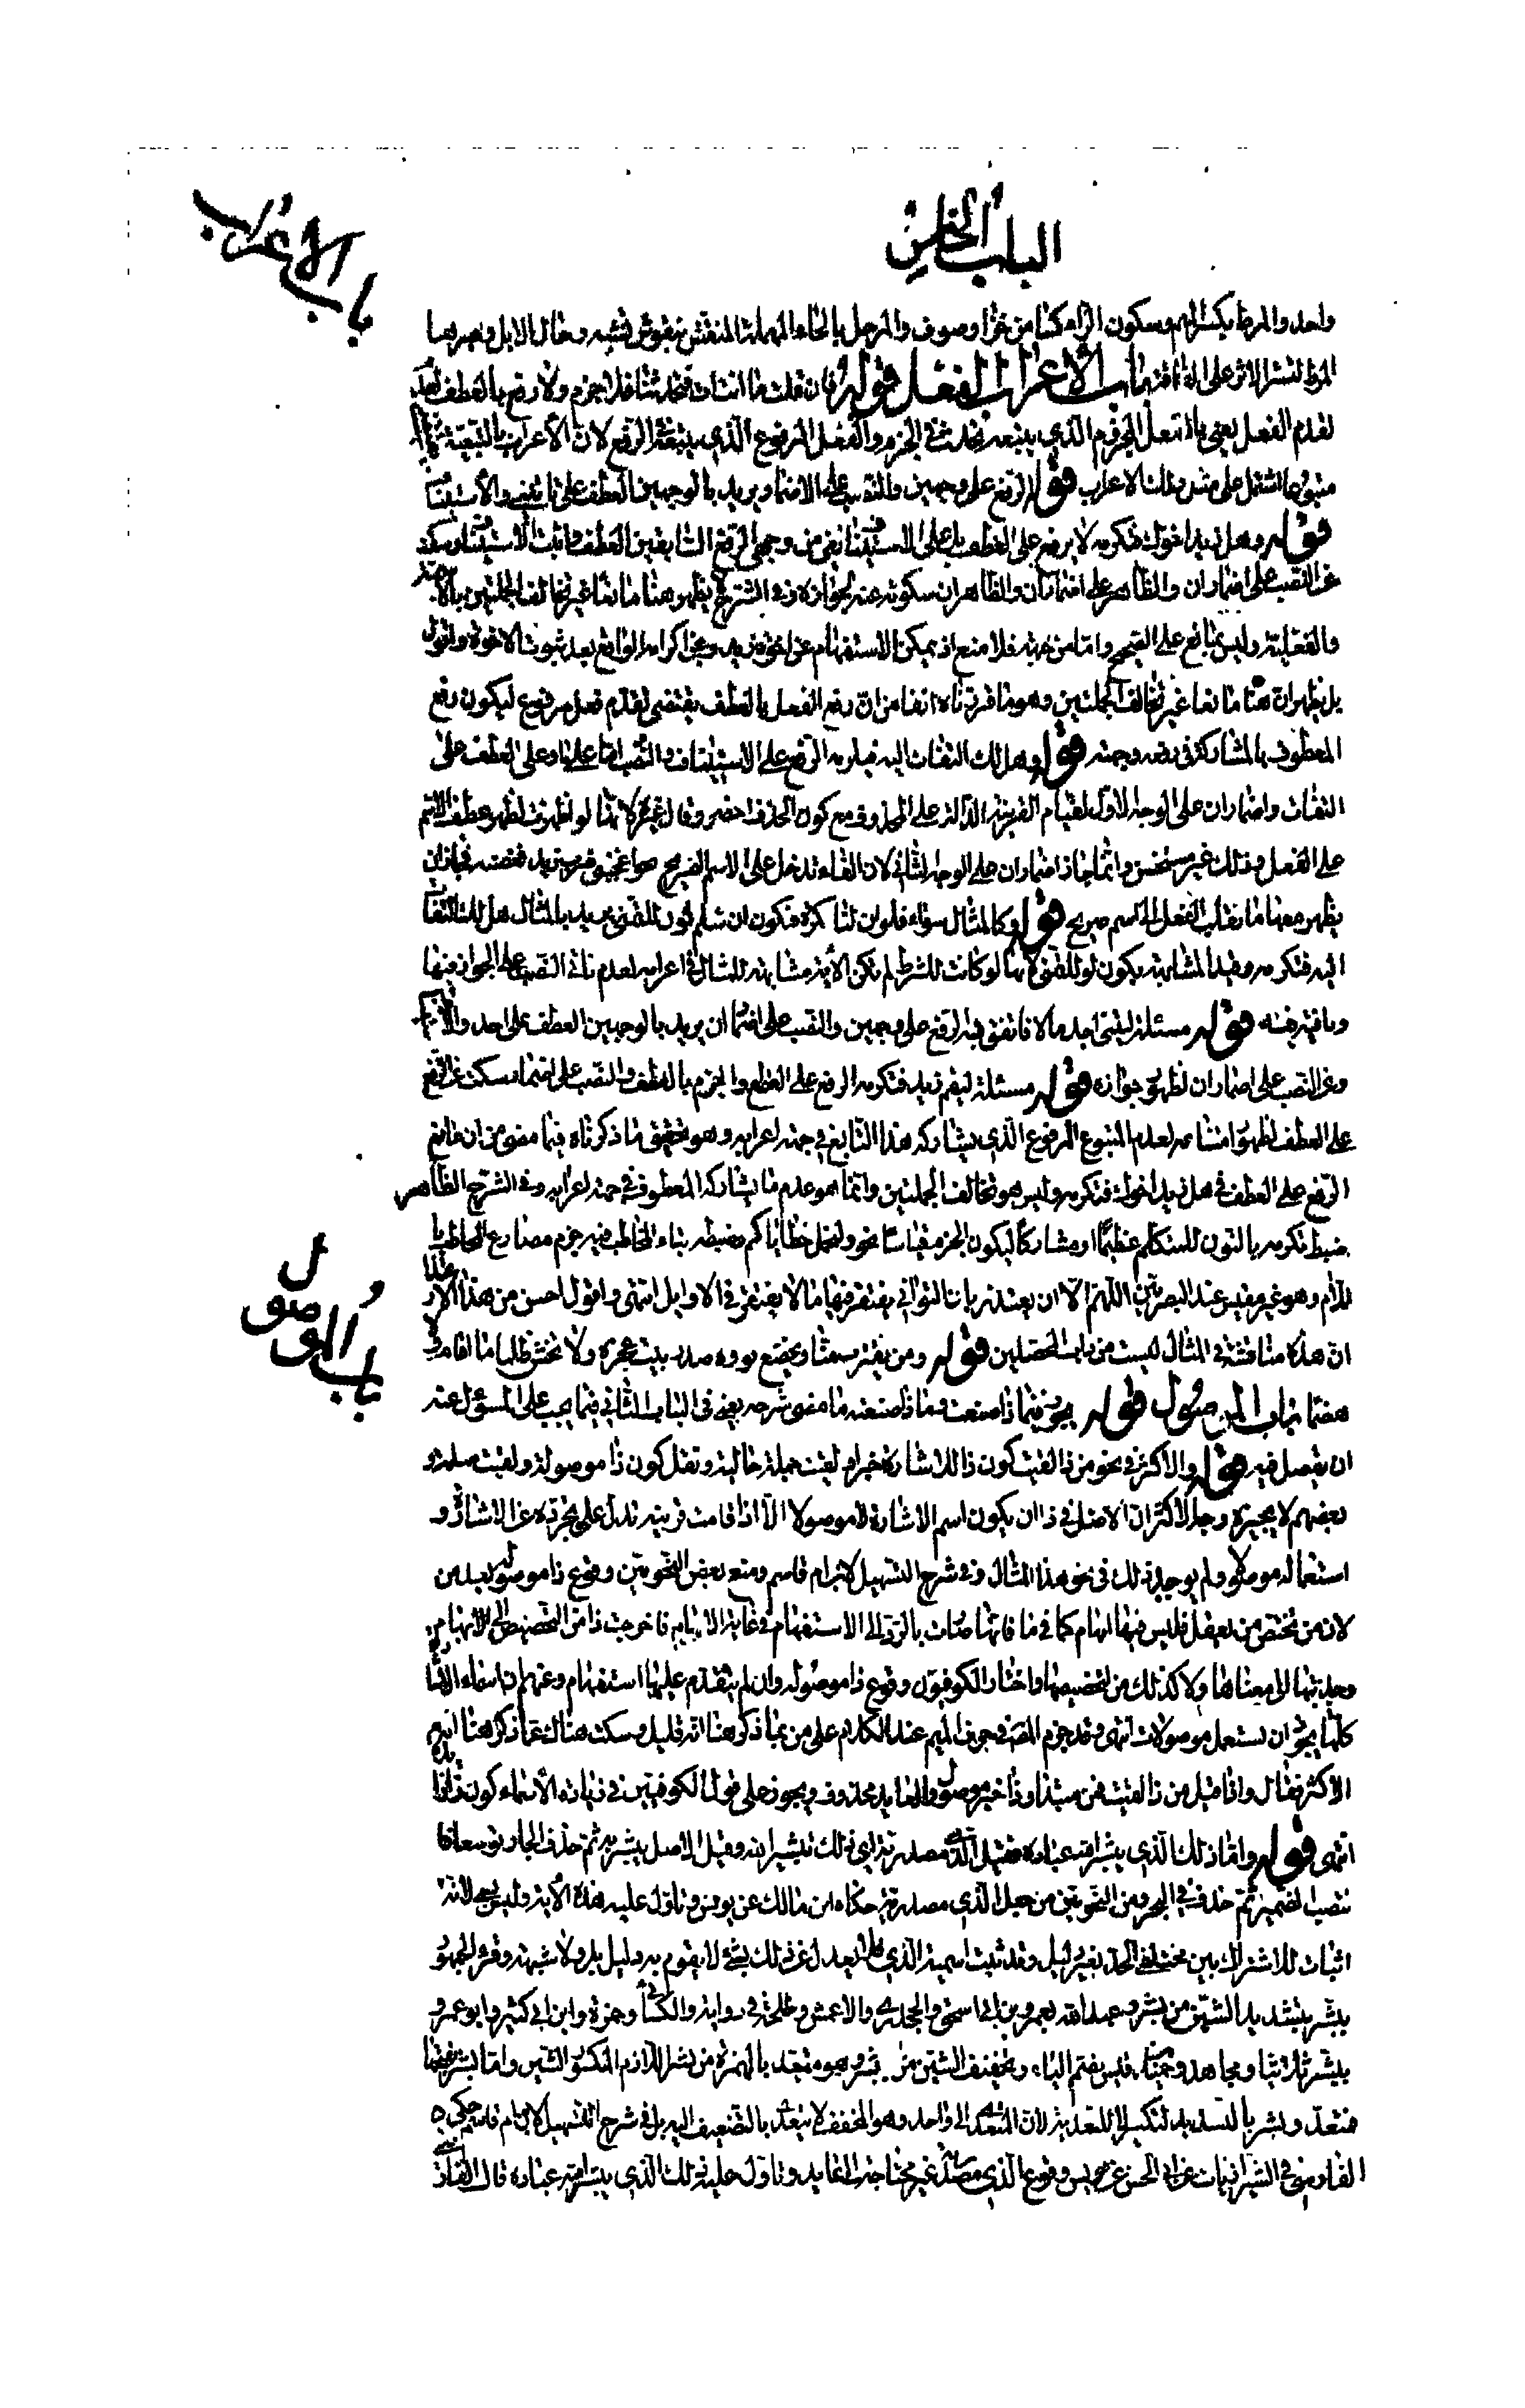 الباب الخامس
باب الاعراب
واحد والمرط بكسر الميم وسكون الراء كساء من خز او صوف والمرحل بالحاء المهملة المنقش بنقوش تشبه رحال الابل وجرها
المرط لتستر الاثر على القافة باب الأعراب الفعل قوله فان قلت ما انت ات فتحدثنا فلا جزم ولا رفع بالعطف لعدم
تقدم الفعل يعني بالفعل المجزوم الذي يتبعه تحدث في الجزم والفعل المرفوع الذي يتبعه في الرفع لان الأعراب بالتبعية
متبوعا اشتمل على مثل ذلك الاعراب قوله الرفع على وجهين والنصب على الاضمار يريد بالوجهين العطف على تاتيني والأستيناف
قوله وهل زيد اخوك فتكرمه لا يرفع على العطف بل على الاستيناف نفى من وجهي الرفع السابقين العطف واثبت الاستيناف وسكت
عن النصب على اضمار ان والظاهر ان سكوته عنه لجوازه وفي الشرح لم يظهر هنا مانعا غير تخالف الجملتين بالاسمية
والفعلية وليس بمانع على الصحيح واما من جهته فلا منع اذ يمكن الاستفهام عن اخوة زيد وعن اكرامه الواقع بعد ثبوت الاخوة واقول
بل يظهر ان هنا مانعا غير تخالف الجملتين وهو ما قررناه انفا من ان رفع الفعل بالعطف يقتضي تقدم فعل مرفوع ليكون رفع
المعطوف بالمشاركة في رفعه وجهته قوله وهل لك التفات اليه فتكرمه الرفع على الاستيناف والنصب اما على الجواب وعلى العطف على
التفات واضمار ان على الوجه الاول لقيام القرينة الدالة على المحذوف مع كون الحذف اخصر وقال غيره لانها لو اظهرت لظهر عطف الاسم
على الفعل وذلك غير مستحسن وانما جاز اضمار ان على الوجه الثاني لان الفاء تدخل على الاسم الصريح نحو اعجبني ضرب زيد فغضبه فجاز ان
يظهر معها ما يقلب الفعل الى اسم صريح قوله وكالمثال سواء فلو ان لنا كرة فنكون ان سلم كون لو للتمني يريد بالمثال هل لك التفات
اليه فتكرمه وقيد المشابهة بكون لو للتمني لانها لو كانت للشرط لم تكن الأية مشابهة للمثال في اعرابه لعدم تاتي النصب على الجواب فيها
وما فيه هنا قوله مسئلة ليتني اجد مالا فانفق منه الرفع على وجهين والنصب على اضمار ان يريد بالوجهين العطف على اجد والأستيناف
وعن النصب على اضمار ان لظهور جوازه قوله مسئلة ليقم زيد فنكرمه الرفع على القطع والجزم بالعطف والنصب على اضمار سكت عن الرفع
على العطف لظهور امتناعه لعدم المتبوع المرفوع الذي يشاركه هذا التابع في جهة اعرابه وهو تحقيق ما ذكرناه فيما مضى من ان مانع
الرفع على العطف في هل زيد اخوك فتكرمه وليس هو تخالف الجملتين وانما هو عدم ما يشاركه المعطوف في جهة اعرابه وفي الشرح الظاهر
ضبط نكرمه بالنون للمتكلم عظيما او مشاركا ليكون الجزم مقياسا نحو ولنحمل خطاياكم وضبطه بتاء الخطاب فيه جزم مضارع المخاطب با
للام وهو غير مقيس عند البصريين اللهم الا ان يعتذر بان الثواني يغتفر فيها ما لا يغتفر في الاوايل انتهى واقول احسن من هذا الاعتذار
ان هذه مناقشة في المثال ليست من داب المحصلين قوله ومن يقترب منا ويخضع نووه صدر بيت عجزه ولا يخش ظلما ما اقام ولا
هضما باب الموصول قوله يجوز في ماذا صنعت وماذا صنعته ما مضى شرحه يعني في الباب الثاني فيما يجب على المسؤل عنه
باب الموصول
ان يفصل فيه قوله والاكثر في نحو من ذا لقيت كون ذا للاشارة خبرا ولقيت جملة حالية وتقل كون ذا موصولة ولقيت صلة و
بعضهم لا يجيزه وجه الاكثر ان الاصل في ذا ان يكون اسم الاشارة لا موصولا الا اذا قامت قرينة تدل على تجرده عن الاشارة و
استعماله موصولا ولم يوجد ذلك في نحو هذا المثال وفي شرح التسهيل لابن ام قاسم ومنع بعض النحويين وقوع ذا موصولة بعد من
لان من تختص بمن يعقل فليس فيها ابهام كما في ما فانها صارت بالرد الى الاستفهام في غاية الابهام فاخرجت ذا من التخصيص الى الابهام
وجذبتها الى معناها ولا كذلك من لتخصيصها واختار الكوفيون وقوع ذا موصولة وان لم يتقدم عليها استفهام وعنهم ان اسماء الاشارة
كلها يجوز ان تستعمل موصولات انتهى وقد جزم المصنف في حرف الميم عند الكلام على من بما ذكر هنا انه قليل وسكت هناك عما ذكر هنا انه
الاكثر فقال واذا قيل من ذا لقيت فمن مبتدا وذا خبر موصول والعايد محذوف ويجوز على قول الكوفيين في زيادة الأسماء كون ذا زايدة
انتهى قوله واما ذلك الذي يبشر الله عباده فقيل الذي مصدرية اي ذلك تبشير الله وقيل الاصل يبشر به ثم حذف الجار توسعا فا
نتصب الضمير ثم حذف في البحر ومن النحويين من جعل الذي مصدرية حكاه ابن مالك عن يونس وتاول عليه هذه الأية وليس بشئ لانه
اثبات للاشتراك بين مختلفي الحد بغير دليل وقد ثبتت اسمية الذي فلا يعدل عن ذلك بشئ لا يقوم به دليل بل ولا شبهة وقرا الجمهور
يبشر بتشديد الشين من بشر وعبد الله بن يعمر وابن ابي اسحق والجحدري والاعمش وطلحة في رواية والكسائي وحمزة وابن كثير وابو عمرو
يبشر ثلاثيا ومجاهد وحميد بن قيس بضم الياء وتخفيف الشين من ابشر وهو معدى بالهمزة من بشر اللازم المكسور الشين واما بشر بفتحها
فتعد وبشر بالتشديد للتكثير لا للتعدية لان المتعدي الى واحد وهو المخفف لا يتعدى بالتضعيف اليه بل في شرح التسهيل لابن ام قاسم حكى
الفارسي في الشيرازيات عن ابي الحسن عن يونس وقوع الذي مصدرية غير محتاجة الى عايد وتاول عليه ذلك الذي يبشر الله عباده قال الفارسي